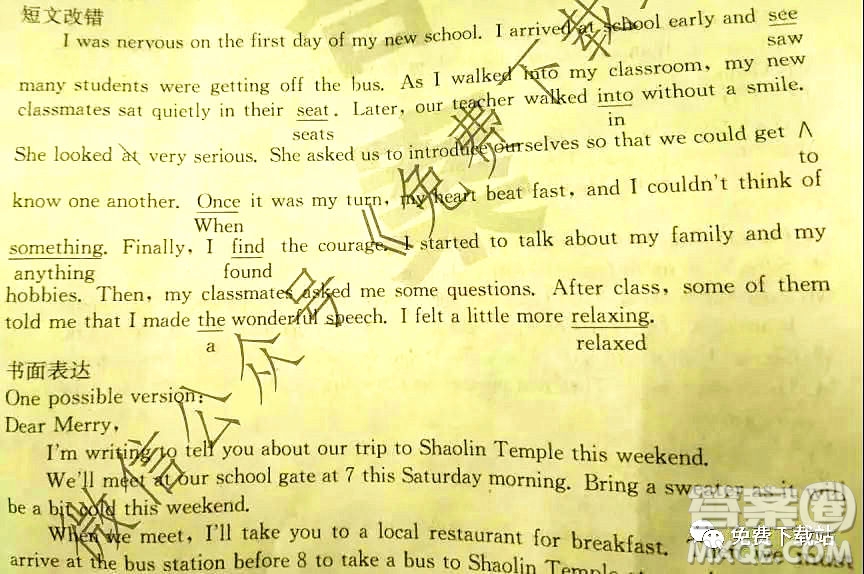 短文改错
I was nervous on the first day of my new school. I arrived at school early and see
saw
many students were getting off the bus. As I walked into my classroom, my new
classmates sat quietly in their seat. Later, our teacher walked into without a smile.
seats in
She looked at very serious. She asked us to introduce ourselves so that we could get ∧
to
know one another. Once it was my turn, my heart beat fast, and I couldn't think of
When
something. Finally, I find the courage. I started to talk about my family and my
anything found
hobbies. Then, my classmates asked me some questions. After class, some of them
told me that I made the wonderful speech. I felt a little more relaxing.
a relaxed
书面表达
One possible version:
Dear Merry,
I'm writing to tell you about our trip to Shaolin Temple this weekend.
We'll meet at our school gate at 7 this Saturday morning. Bring a sweater as it will
be a bit cold this weekend.
When we meet, I'll take you to a local restaurant for breakfast.
arrive at the bus station before 8 to take a bus to Shaolin Temple
微信公众号《免费下载
答案
答案圈
MXQE.COM
免费下载站